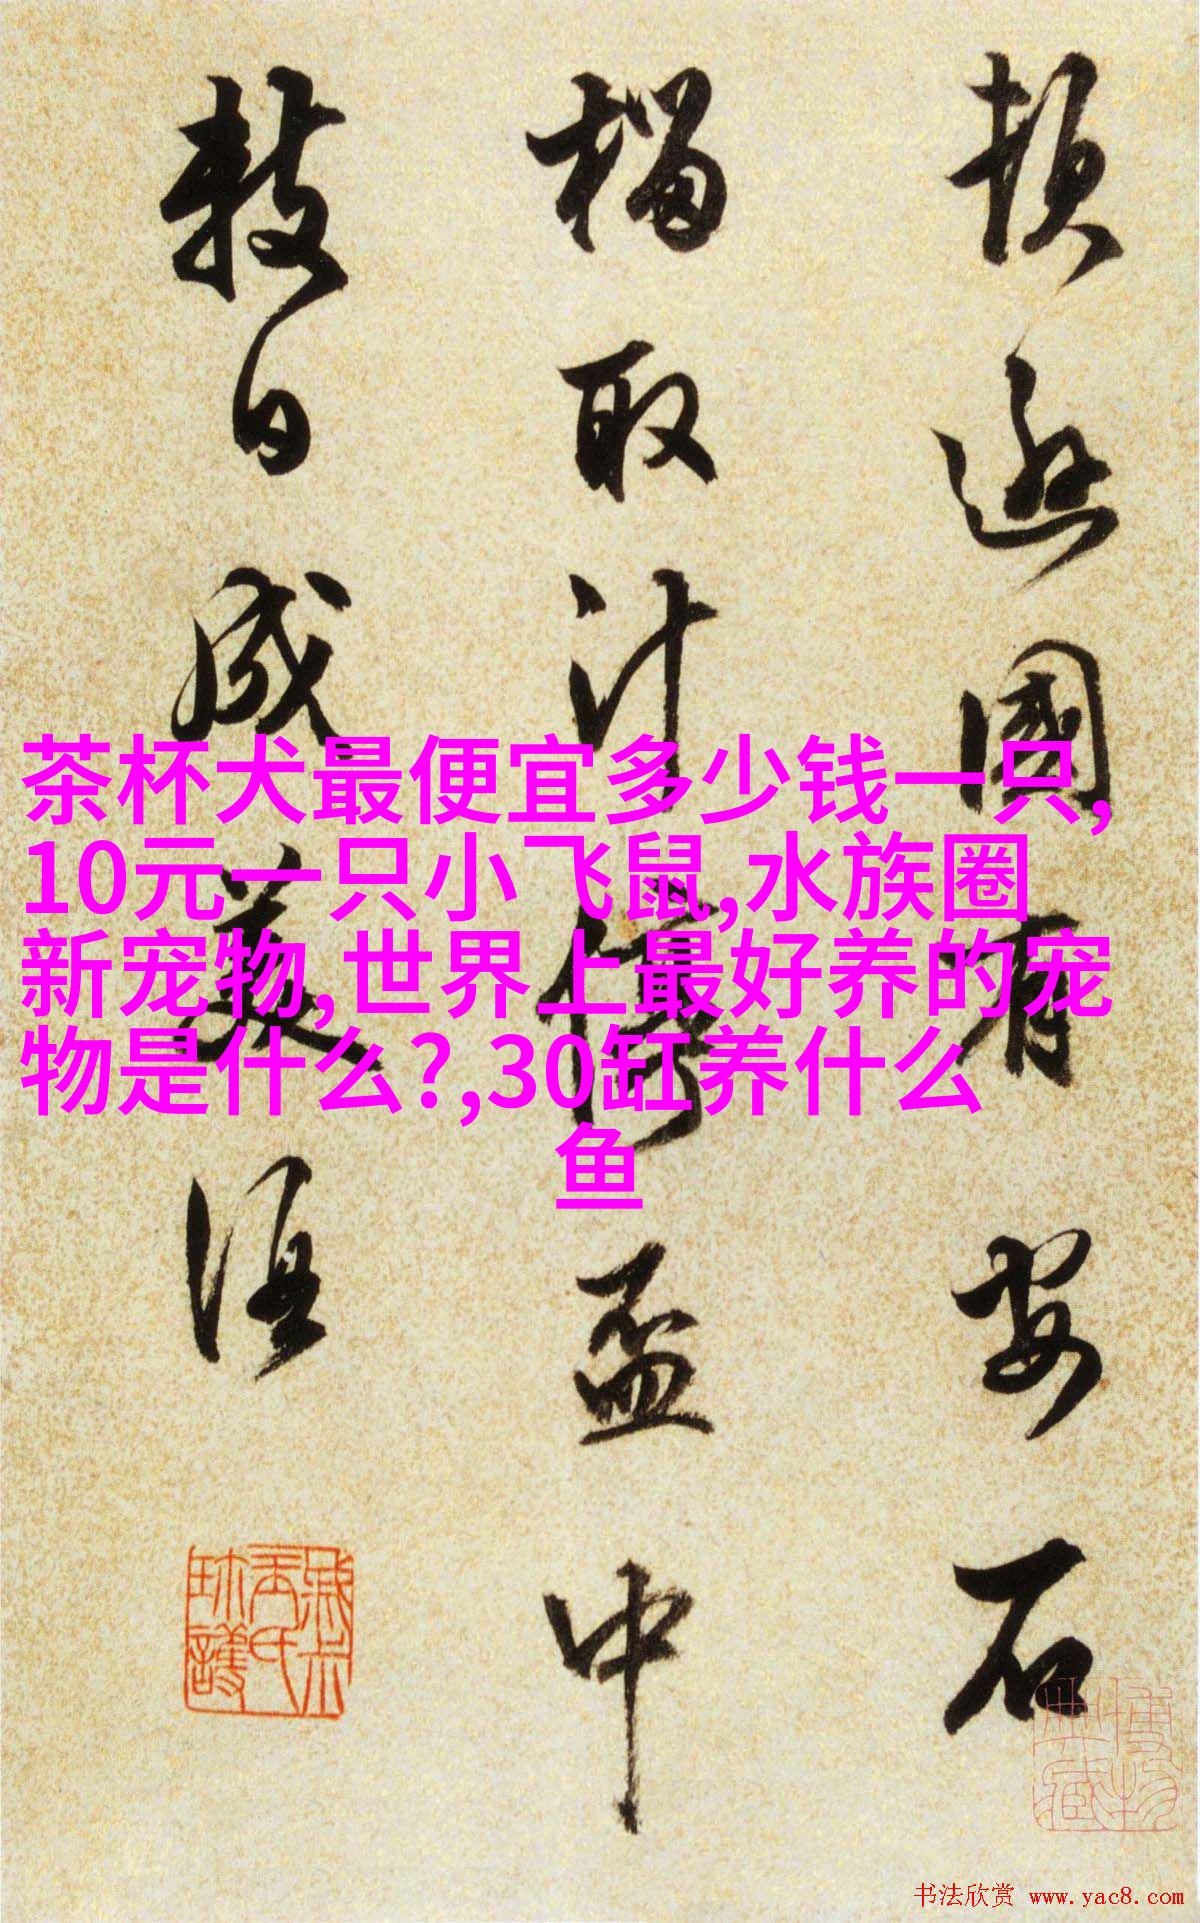 頓遜國有安石
榴取汁停盃中
數日成美酒
茶杯犬最便宜多少钱一只,
10元一只小飞鼠,水族圈
新宠物,世界上最好养的宠
物是什么?,30缸养什么
鱼
书法欣赏 www.yac8.com